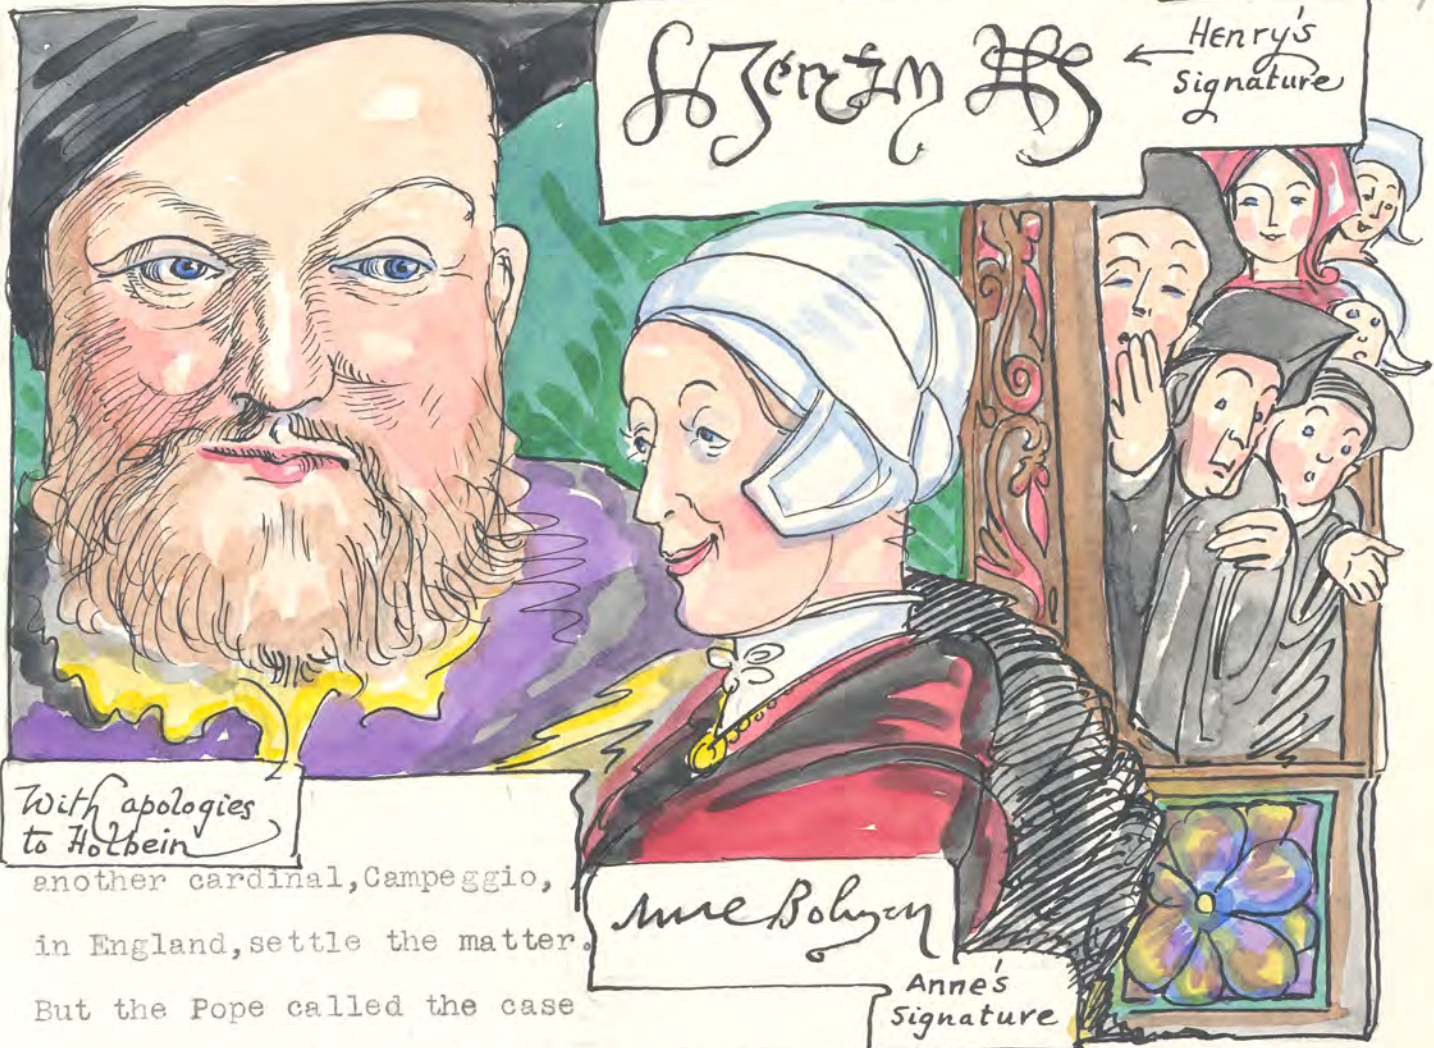 Henry's
Signature
With apologies
to Holbein
another cardinal,Campeggio,
in England,settle the matter.
But the Pope called the case
Anne Boleyn
Anne's
Signature